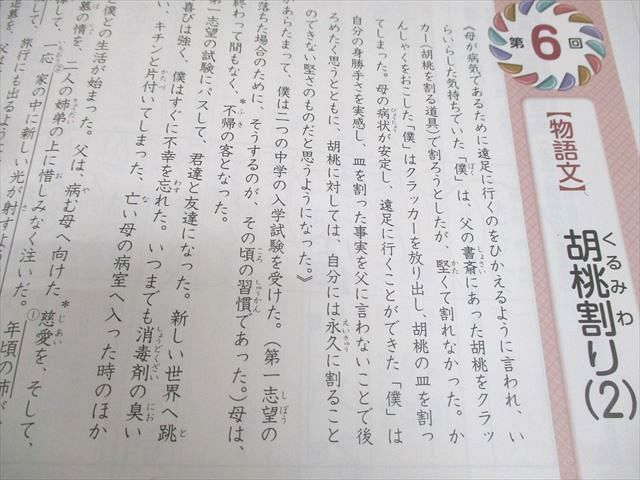 第6回
【物語文】
胡桃割り(2)
くるみわ
《母が病気であるために遠足に行くのをひかえるように言われ、い
らいらした気持ちでいた「僕」は、父の書斎にあった胡桃をクラッ
カー(胡桃を割る道具)で割ろうとしたが、堅くて割れなかった。か
んしゃくをおこした「僕」はクラッカーを放り出し、胡桃の皿を割っ
てしまった。母の病状が安定し、遠足に行くことができた「僕」は
自分の身勝手さを実感し、皿を割った事実を父に言わないことで後
ろめたく思うとともに、胡桃に対しては、自分には永久に割ること
のできない堅さのものだと思うようになった。》
があらたまって、僕は二つの中学の入学試験を受けた。(第一志望の
落ちた場合のために、そうするのが、その頃の習慣であった。)母は、
終わって間もなく、*不帰の客となった。
第一志望の試験にパスして、君達と友達になった。新しい世界へ跳
喜びは強く、僕はすぐに不幸を忘れた。いつまでも消毒剤の臭い
い、キチンと片付いてしまった、亡い母の病室へ入った時のほか
僕との生活が始まった。父は、病む母へ向けた*①慈愛を、そして、
慕の情を、二人の姉弟の上に惜しみなく注いだ。
して、一応 家の中に新しい光が射すよ
旅行にも出るように
年頃の姉が